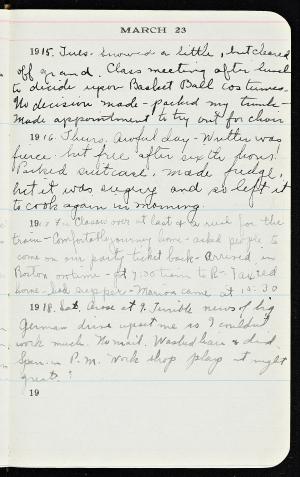 MARCH 23
1915. Tues. Snowed a little, but cleared
off grand. Class meeting after lunch
to decide upon Basket Ball costumes.
No decision made - packed my trunk -
Made appointment to try out for choir
1916. Thurs. Awful day - was
fierce but free after sixth hour.
Packed suitcase, made fudge,
but it was sugary and so left it
to cook again in morning.
Classes over at last & a rush for the
train - Comfortable journey home - asked people to
come on our party ticket back - Arrived in
Boston on time - got 7:00 train to R - Taxied
home - had supper - Marion came at 10:30
1918. Sat. Arose at 9. Terrible news of big
German drive upset me so I couldn't
work much. No mail. Washed hair & did
in P.M. Work shop plays at night
great!
19